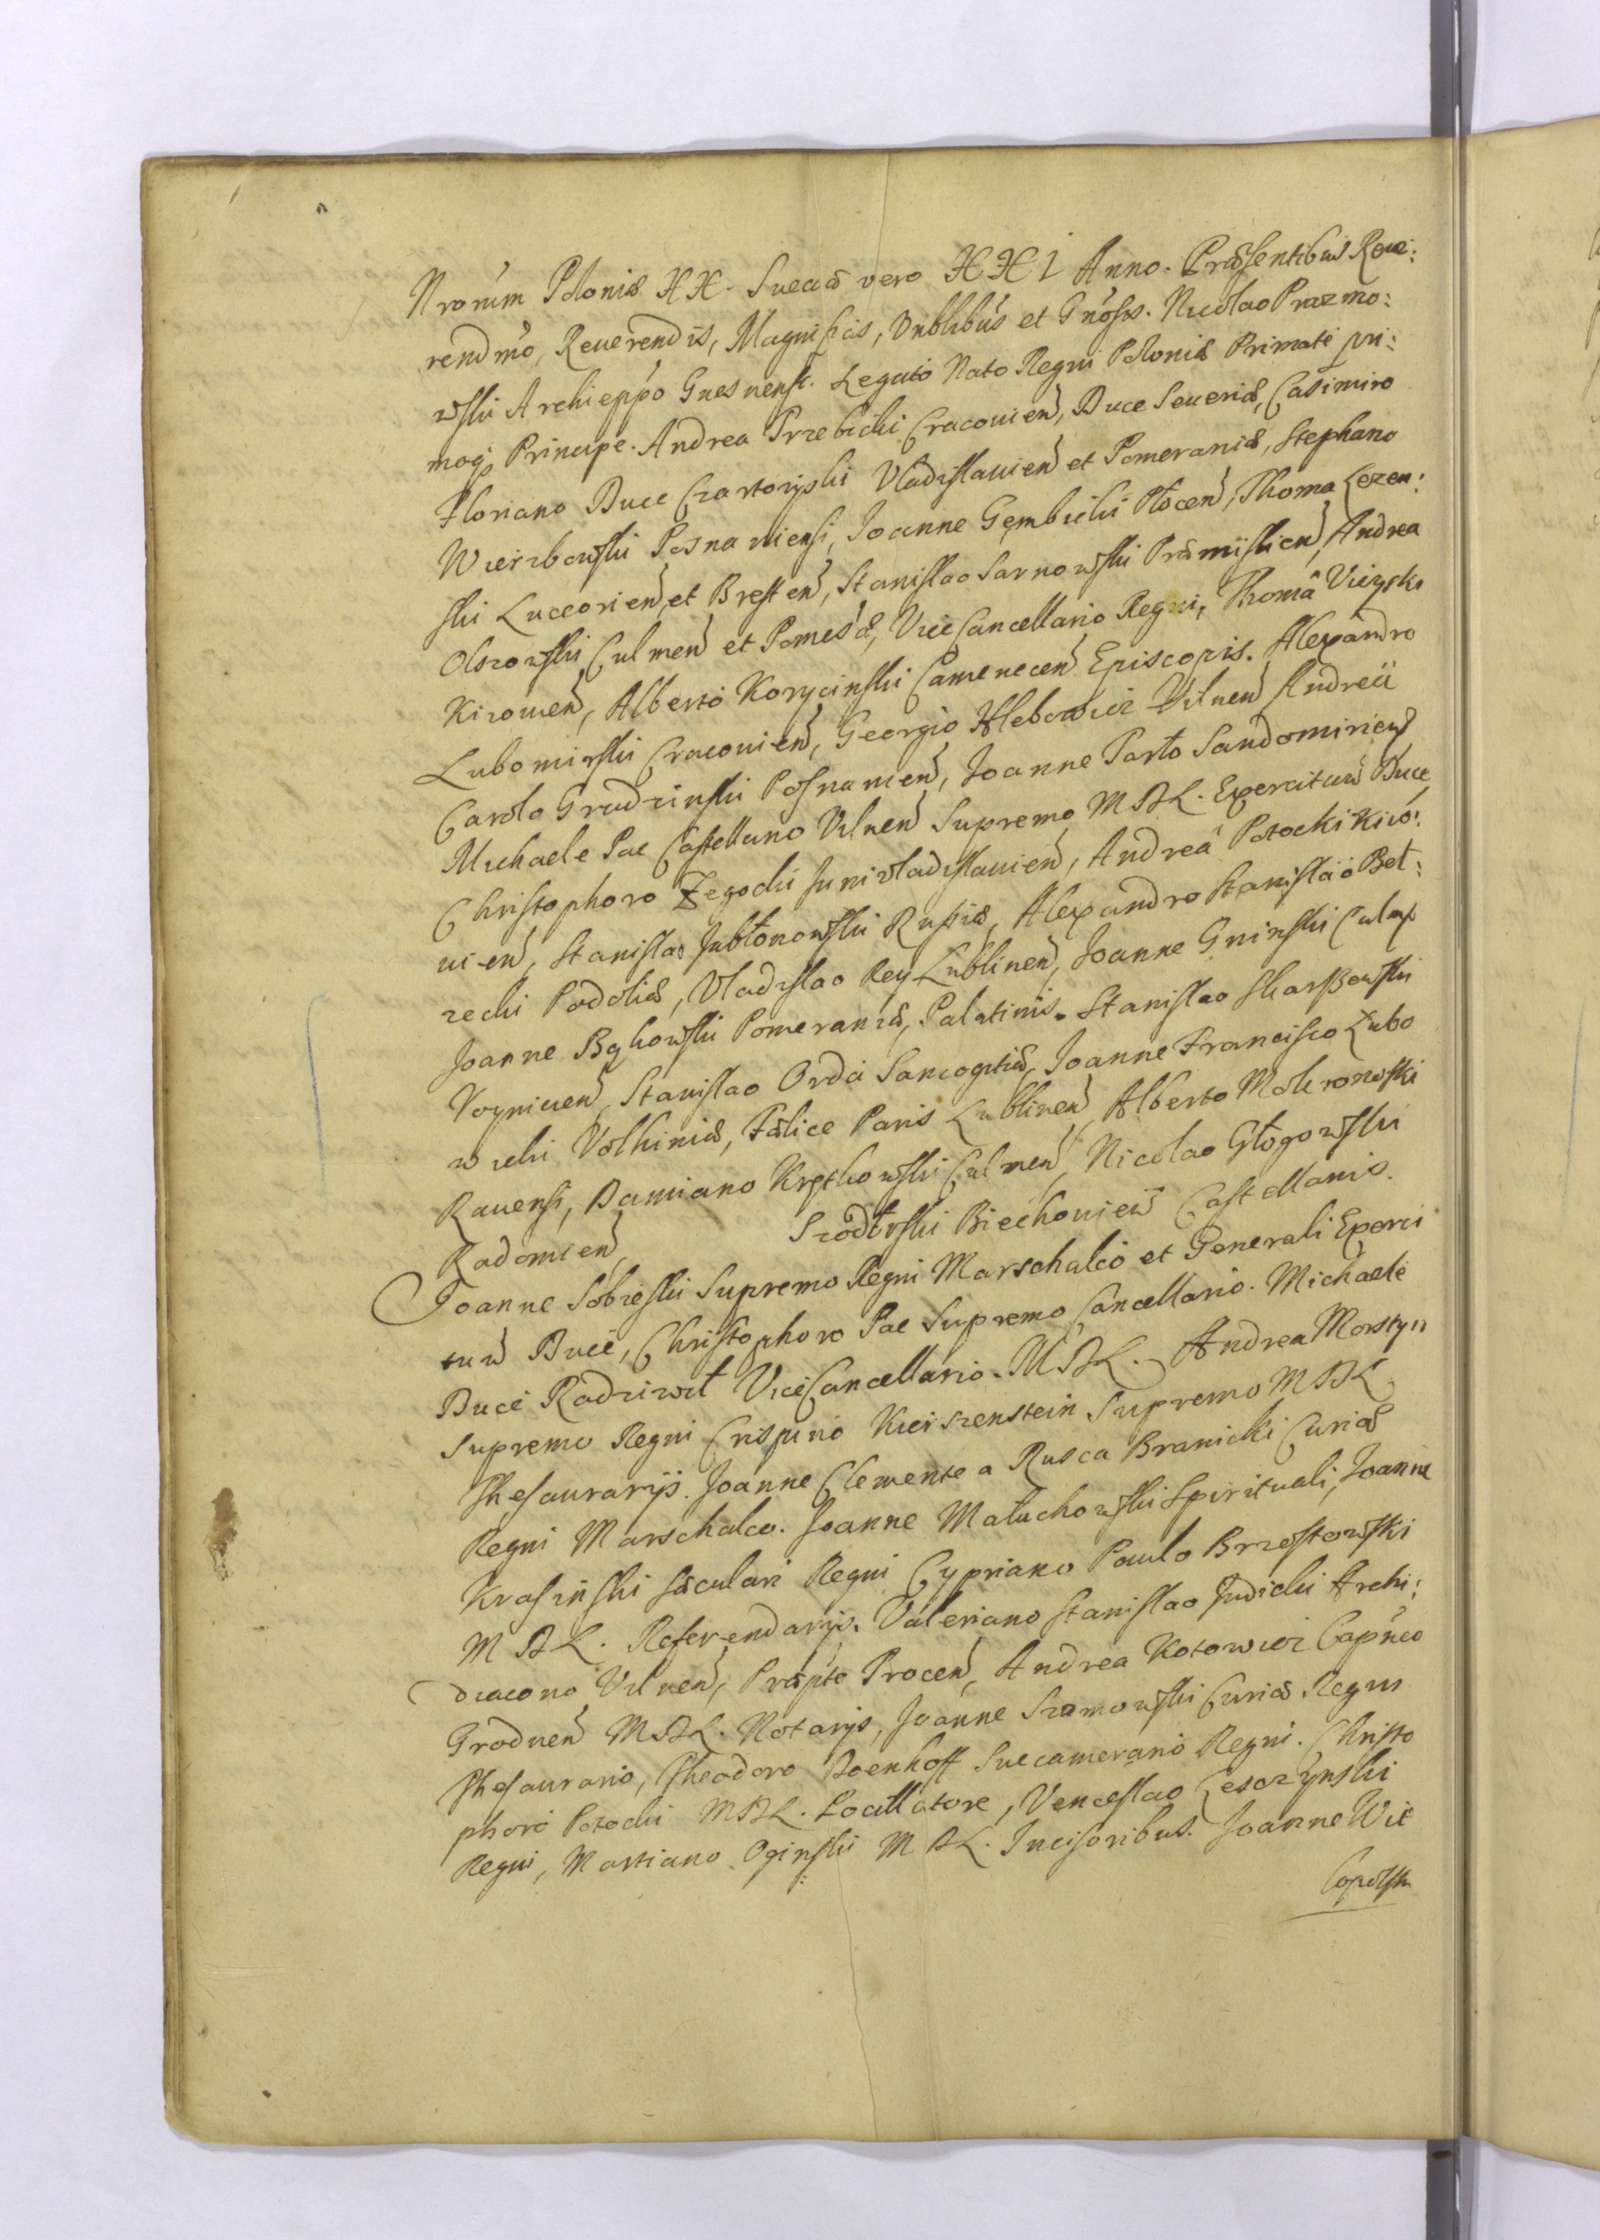 Nrorum Poloniæ XX. Sueciæ vero XXI Anno. Præsentibus Reue:
rendmo, Reuerendis, Magnificis, Vnblibus et Gnosis. Nicolao Prazmo:
wski Archieppo Gnesnensi. Legato Nato Regni Poloniæ Primate pri:
moq Principe. Andrea Trzebicki Cracouien, Duce Seueriæ, Casimiro
Floriano Duce Czartoryski Vladislauien et Pomeraniæ, Stephano
Wierzbowski Posnaniensi, Joanne Gembicki Płocen, Thoma Lezen:
ski Luceorien et Bresten, Stanislao Sarnowski Præmislien, Andrea
Olszowski Culmen et Pomesæ, ViceCancellario Regni, Thomâ Vieyski
Kiouien, Alberto Korycinski Camenecen Episcopis. Alexandro
Lubomirski Cracouien, Georgio Hlebowicz Vilnen, Andreâ
Carolo Grudzinski Posnanien, Joanne Tarło Sandomirien
Michaele Pac Castellano Vilnen Supremo MDL. Exercituum Duce
Christophoro Zegocki Junivladislauien, Andreâ Potocki Kio:
uien, Stanislao Jabłonowski Russiæ, Alexandro Stanislao Beł:
zecki Podoliæ, Vladislao Rey Lublinen, Joanne Gninski Culmen
Joanne Bąkowski Pomeraniæ, Palatinis. Stanislao Skarszewski
Voynicen, Stanislao Orda Samogitiæ, Joanne Francisco Lubo
wicki Volhiniæ, Fælice Paris Lublinen, Alberto Mokronoski
Rauensi, Damiano Kretkowski Culmen, Nicolao Głogowski
Radomien, Szodłrski Biechouien Castellanis.
Joanne Sobieski Supremo Regni Marschalco et Generali Exerci
tuum Duce, Christophoro Pac Supremo Cancellario. Michaele
Duce Radziwił ViceCancellario MDL. Andrea Morstyn
Supremo Regni Crispino Kierszenstein Supremo MDL
Thesaurarijs. Joanne Clemente a Rusca Branicki Curiæ
Regni Marschalco. Joanne Małachowski Spirituali, Joanne
Krasinski sæculari Regni Cypriano Paulo Brzostowski
MDL. Referendarijs. Valeriano Stanislao Judicki Archi:
diacono Vilnen, Præpto Procen, Andrea Kotowicz Capneo
Grodnen MDL. Notarijs, Joanne Szumowski Curiæ Regni
Thesaurario, Theodoro Doenhoff Succamerario Regni. Christo
phoro Potocki MDL. Pocillatore, Venceslao Lesczynski
Regni, Martiano Oginski MDL. Incisoribus. Joanne Wie
lopolski